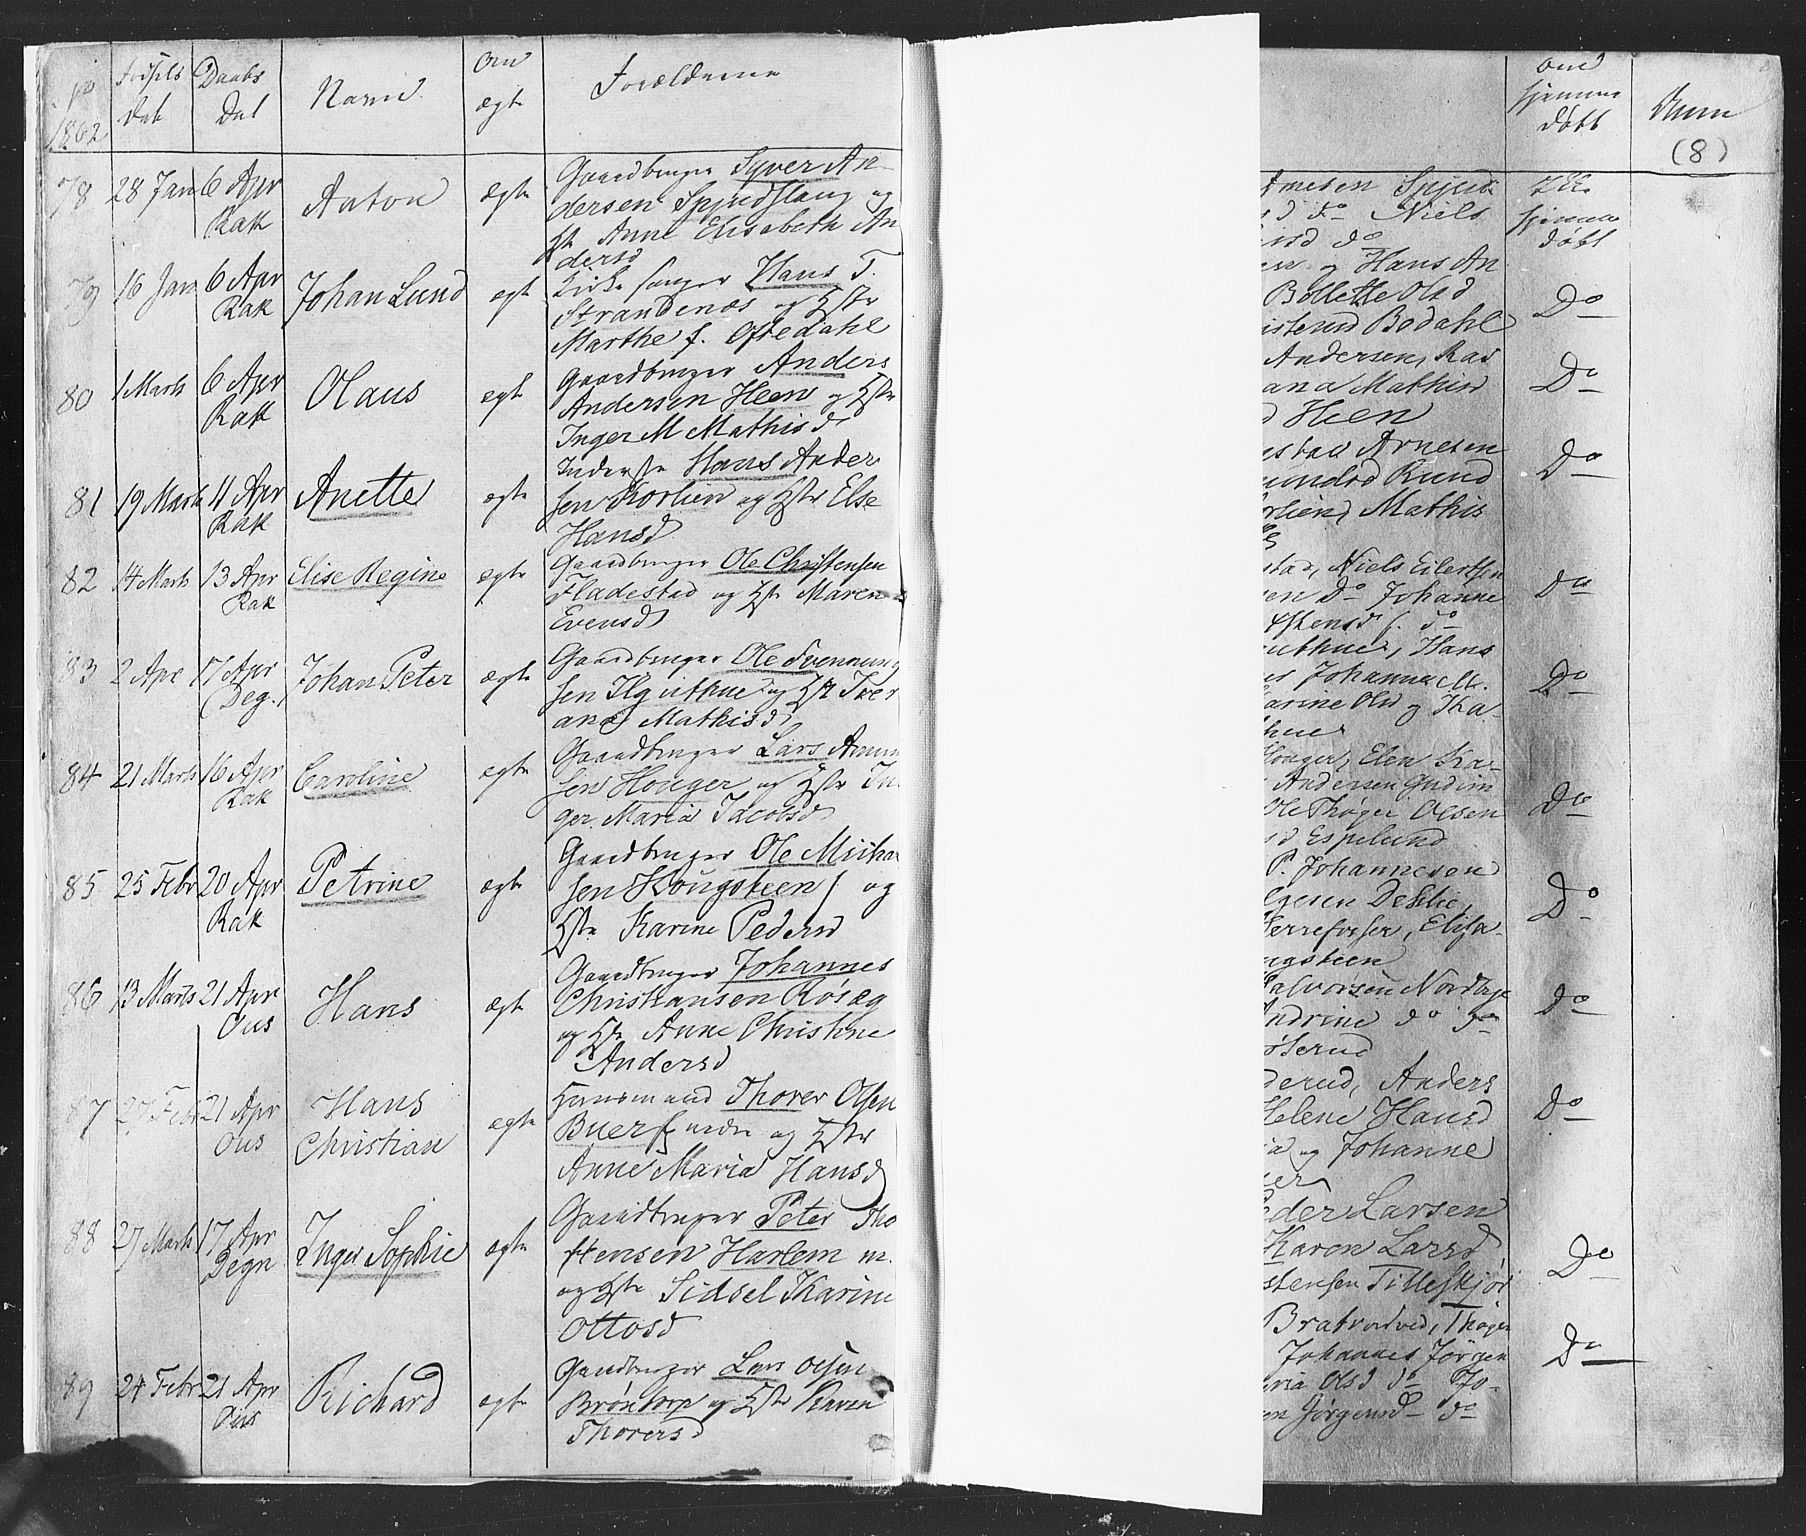 No
1862
Fødsels
Dat
Daabs
Dat
Navn
Om
ægte
Forældrene
78
28 Jan
6 Apr
Rak
Anton
ægte
Gaardbruger Syver An-
dersen Spjudslaug og
Anne Elisabeth An
dersd
79
16 Jan
6 Apr
Rak
Johan Lund
ægt
Kirkesanger Hans T.
Strandenæs og Hstr
Marthe f. Oftedahl
80
1 Marts
6 Apr
Rak
Olaus
ægt
Gaardbruger Anders
Andersen Heen og Hstr
Inger M Mathisd
81
19 Marts
11 Apr
Rak
Anette
ægte
Inderste Hans Ander
sen Korlien og Hstr Else
Hansd
82
14 Marts
13 Apr
Rak
Elise Regine
ægte
Gaardbruger Ole Christensen
Fladestad og Hstr Maren
Evensd
83
2 Apr
17 Apr
Deg.
Johan Peter
ægte
Gaardbruger Ole Svennung
sen og Hstr Iver
ana Mathisd
84
21 Marts
16 Apr
Rak
Caroline
ægte
Gaardbruger Lars Amun
sen Houger og Hstr In
ger Maria Jacobsd
85
25 Febr
20 Apr
Rak
Petrine
ægte
Gaardbruger Ole Micha
sen Hougsteen og
Hstr Karine Pedersd
86
13 Marts
21 Apr
Ous
Hans
ægte
Gaardbruger Johannes
Christiansen Røsæg
og Hstr Anne Christine
Andersd
87
27 Febr
21 Apr
Ous
Hans
Christian
ægte
Huusmand Thorer Olsen
og Hstr
Anne Maria Hansd
88
27 Marts
17 Apr
Degn
Inger Sophie
ægte
Gaardbruger Peter Tho
stensen Harlem m.
og Hstr Sidsel Karine
Ottosd
89
24 Febr
21 Apr
Ous
Richard
ægte
Gaardbruger Lars Olsen
Brøntorp og Hstr Karen
Thorersd
Om
hjemme
døbt
Anm
(8)
Arnesen Spjud
sd Do Niels
rsd Do
en og Hans An
Bollette Olsd
isterud Bodahl
Andersen, Rav
ana Mathisd
d Heen
stad Arnesen
mundrd Rund
orlien, Mathis
stad, Niels Eilertsen
sen Do Johanne
istensd f. Do
uthue, Hans
Johanna M.
arine Olsd og Ka-
hue
Houger, Elen Ka-
Andersen Gudim
Ole Thøger Olsen
sd Espelund
P. Johannesen
lgesen Dehlie,
Herrefoser, Elisa-
ugsteen
alvorsen Nordbye
Andrine Do Do
øserud
derud, Anders
Helene Hansd
ia og Johanne
Peder Larsen
Karen Larsd
stensen Tilleskjør
Bratvedved, Thøger
Johannes Jørgen
aria Olsd Do Jo-
en Jørgensd Do
Ikke
hjemme
døbt
Do
Do
Do
Do
Do
Do
Do
Do
Do
Do
Do